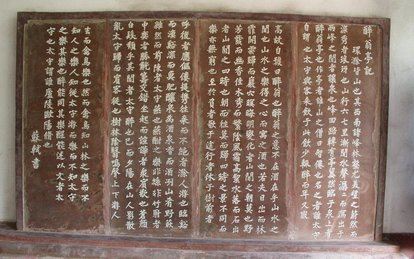 醉翁亭記
環滁皆山也其西南諸峰林壑尤美望之蔚然而
深秀者瑯琊也山行六七里漸聞水聲潺潺而瀉出于
兩峰之間者釀泉也峰回路轉有亭翼然臨于泉上者
醉翁亭也作亭者誰山之僧智僊也名之者誰太守
自謂也太守與客來飲于此飲少輒醉而年又最
高故自號曰醉翁也醉翁之意不在酒在乎山水之
間也山水之樂得之心而寓之酒也若夫日出而林
霏開雲歸而巖穴暝晦明變化者山間之朝暮也野
芳發而幽香佳木秀而繁陰風霜高潔水落而石出
者山間之四時也朝而往暮而歸四時之景不同而
樂亦無窮也至於負者歌于塗行者休于樹前者
呼後者應傴僂提攜往來而不絕者滁人游也臨谿
而漁谿深而魚肥釀泉為酒泉香而酒洌山肴野蔌
雜然而前陳者太守宴也宴酣之樂非絲非竹射者
中弈者勝觥籌交錯起坐而諠譁者眾賓懽也蒼顏
白髮頹乎其間者太守醉也已而夕陽在山人影散
亂太守歸而賓客從也樹林陰翳鳴聲上下遊人
去而禽鳥樂也然而禽鳥知山林之樂而不
知人之樂人知從太守遊而樂而不知太守
之樂其樂也醉能同其樂醒能述以文者太
守也太守謂誰廬陵歐陽修也
蘇軾書